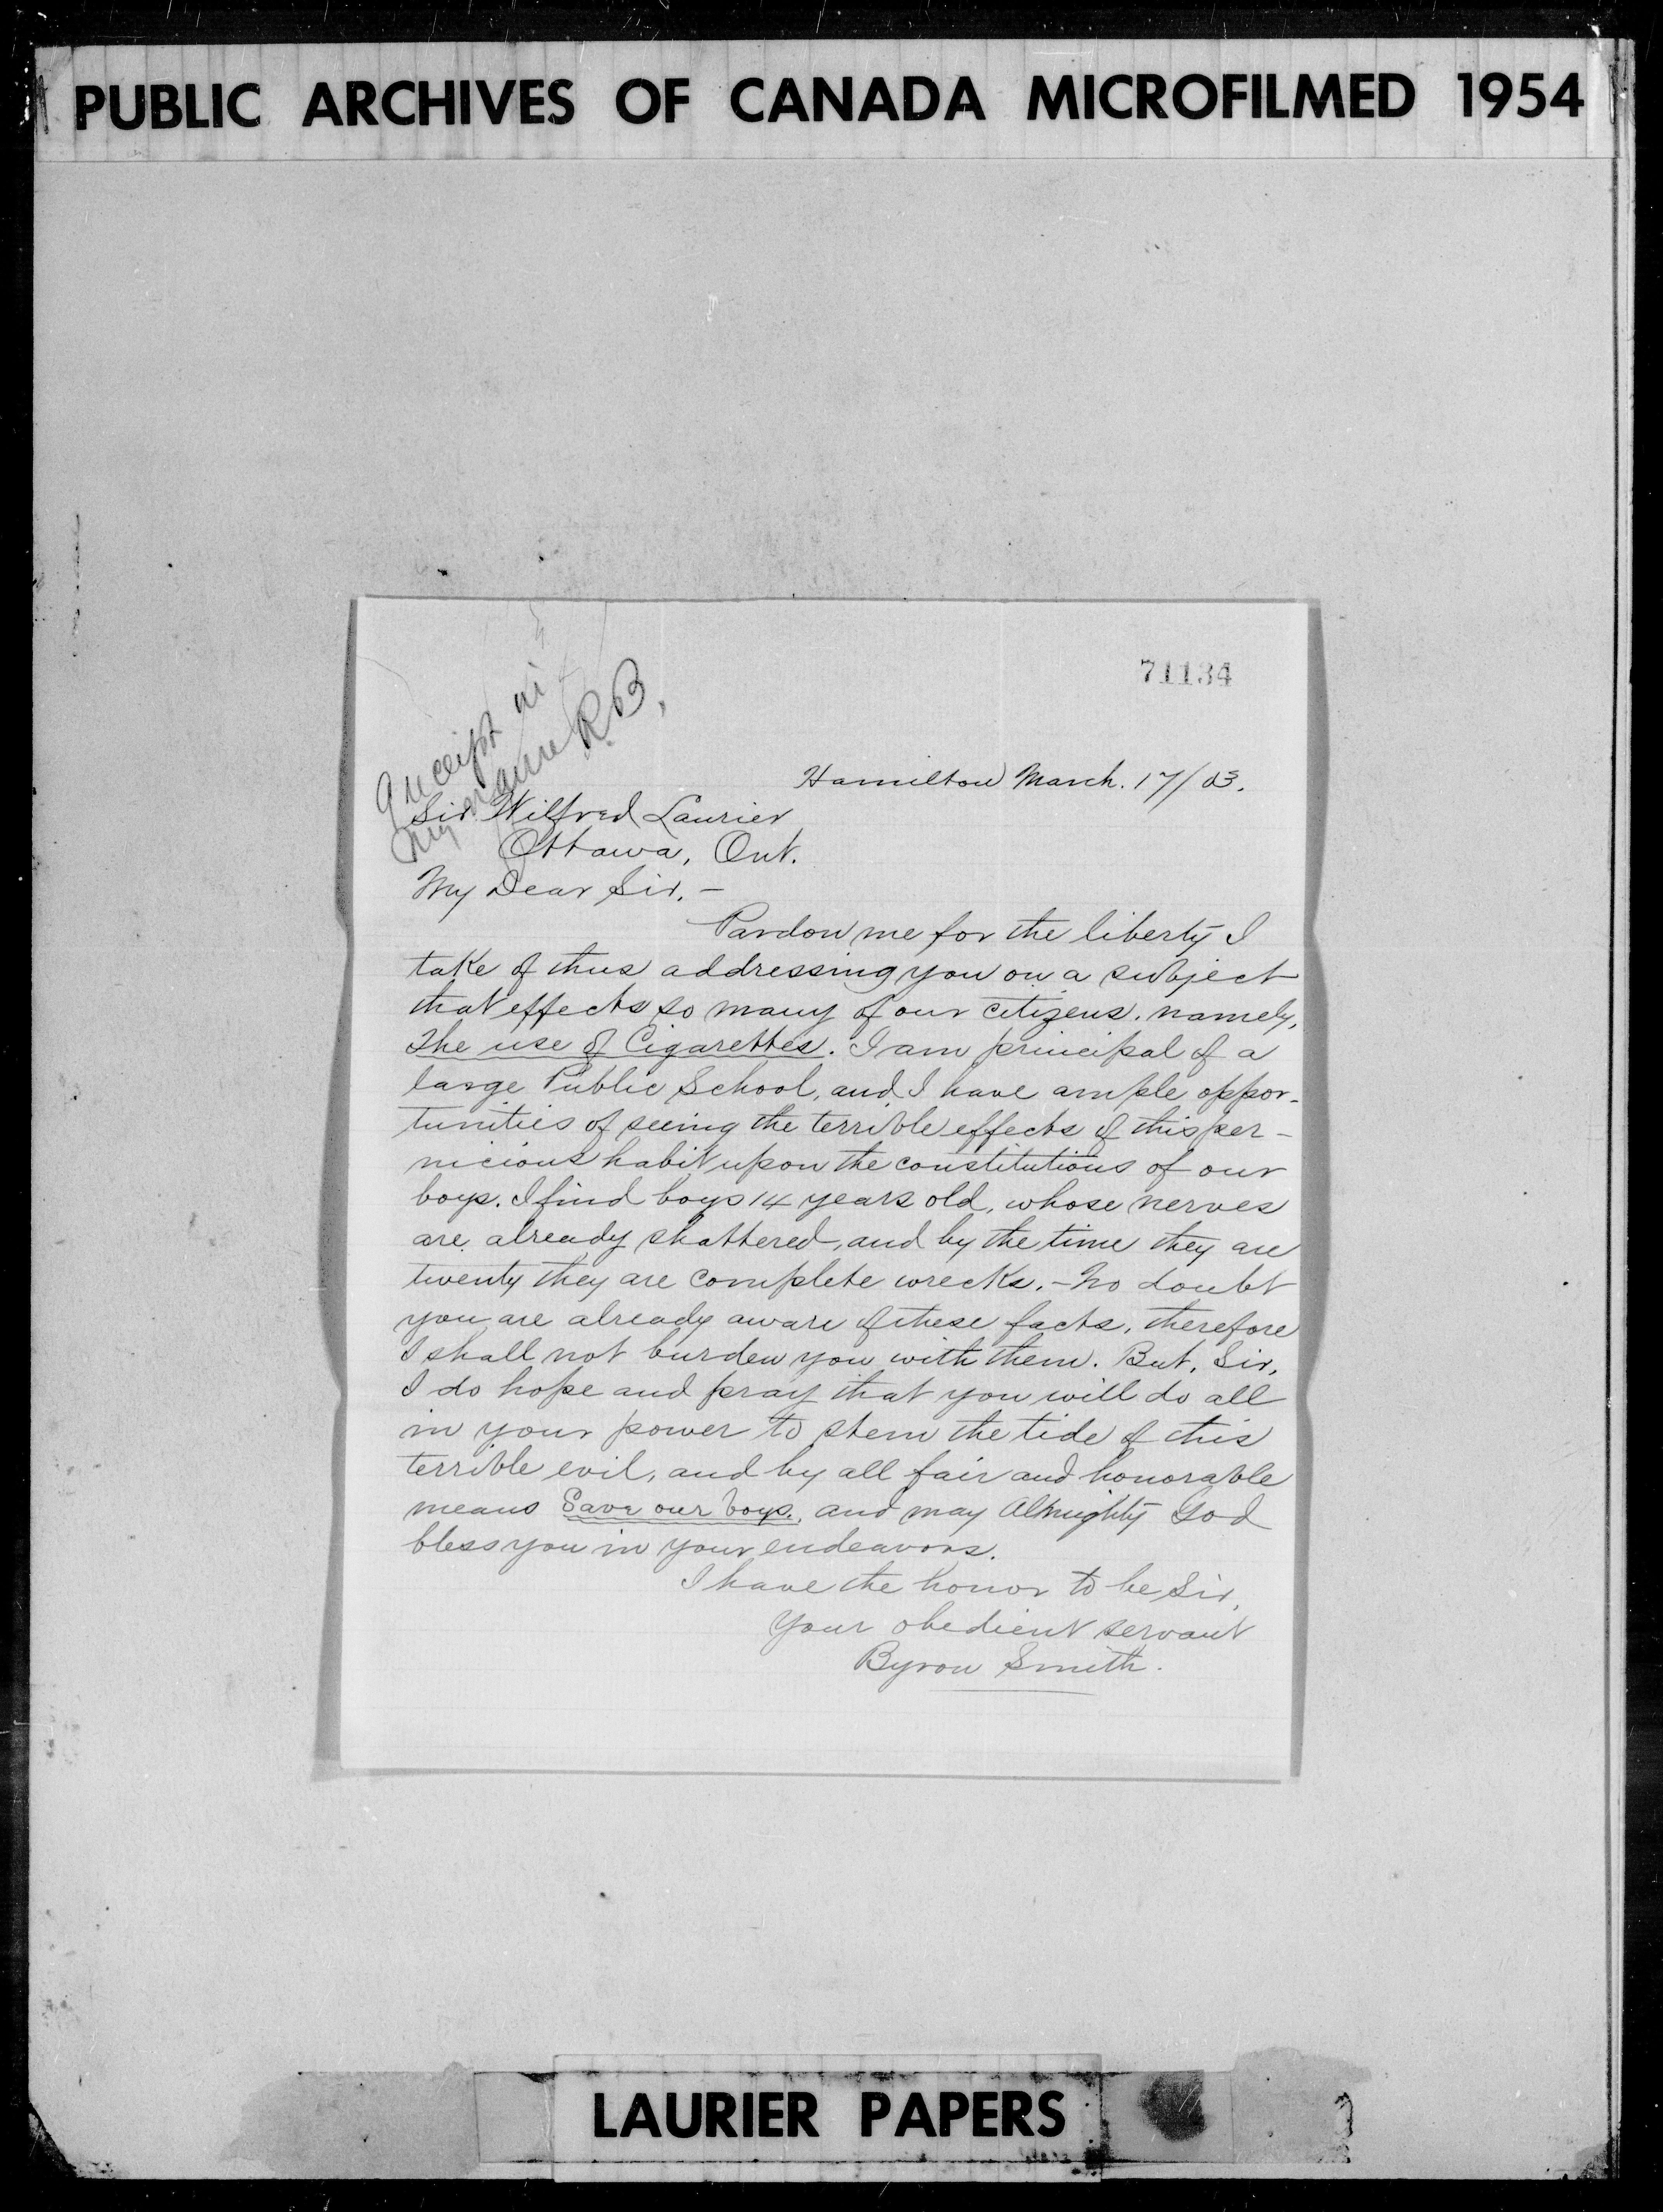 PUBLIC ARCHIVES OF CANADA MICROFILMED 1954
71134
receipt in
my name R.B.
Hamilton March. 17/03.
Sir Wilfred Laurier,
Ottawa, Ont.
My Dear Sir, -
Pardon me for the liberty I
take of thus addressing you on a subject
that effects so many of our citizens, namely,
The use of Cigarettes. I am principal of a
large Public School, and I have ample oppor-
tunities of seeing the terrible effects of this per-
nicious habit upon the constitutions of our
boys. I find boys 14 years old, whose nerves
are already shattered, and by the time they are
twenty they are complete wrecks. - No doubt
you are already aware of these facts, therefore
I shall not burden you with them. But, Sir,
I do hope and pray that you will do all
in your power to stem the tide of this
terrible evil, and by all fair and honorable
means Save our boys, and may Almighty God
bless you in your endeavors.
I have the honor to be Sir,
Your obedient servant
Byron Smith.
LAURIER PAPERS